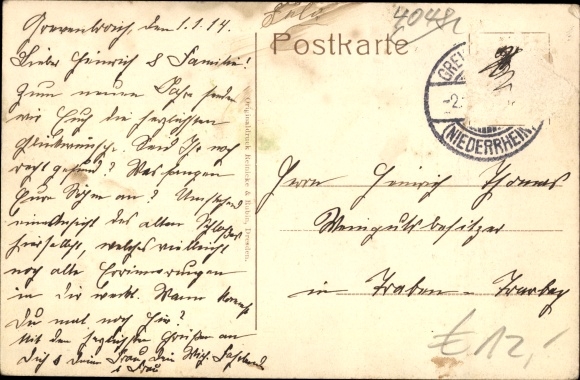 Grevenbroich, den 1.1.14.
Lieber Heinrich & Familie!
Zum neuen Jahr senden
wir Euch die herzlichsten
Glückwünsche. Seid Ihr noch
recht gesund? Was fangen
Eure Söhne an? Umstehend
eine Ansicht des alten Schloßes
hierselbst, welches vielleicht
noch alte Erinnerungen
in Dir weckt. Wann kommst
Du mal nach hier?
Mit den herzlichsten Grüßen an
Dich & Deine Frau, Dein Wilh.
& Frau
Originaldruck Reinicke & Rubin, Dresden.
Feld
4048
Postkarte
GREV
-2.
(NIEDERRHEIN)
Herrn Heinrich Thomas
Weingutsbesitzer
in Traben-Trarbach
€ 12,-